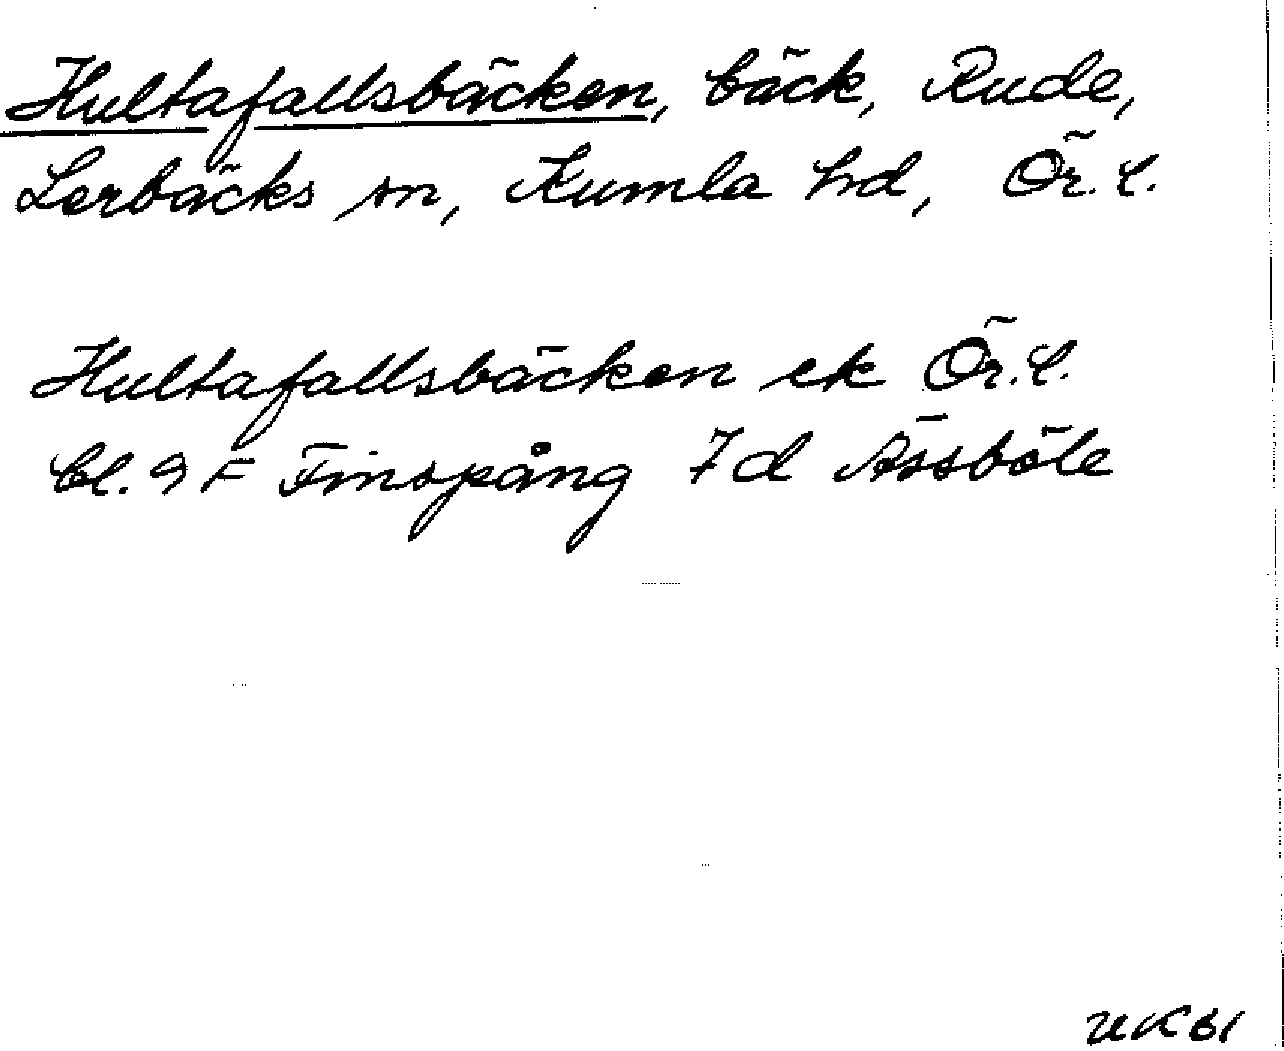 Hultafallsbäcken, bäck, Rude,
Lerbäcks sn, Kumla hd, Ör. l.
Hultafallsbäcken ek Ör. l.
bl. 9 F Finspång 7 d Åssböle
UK 61